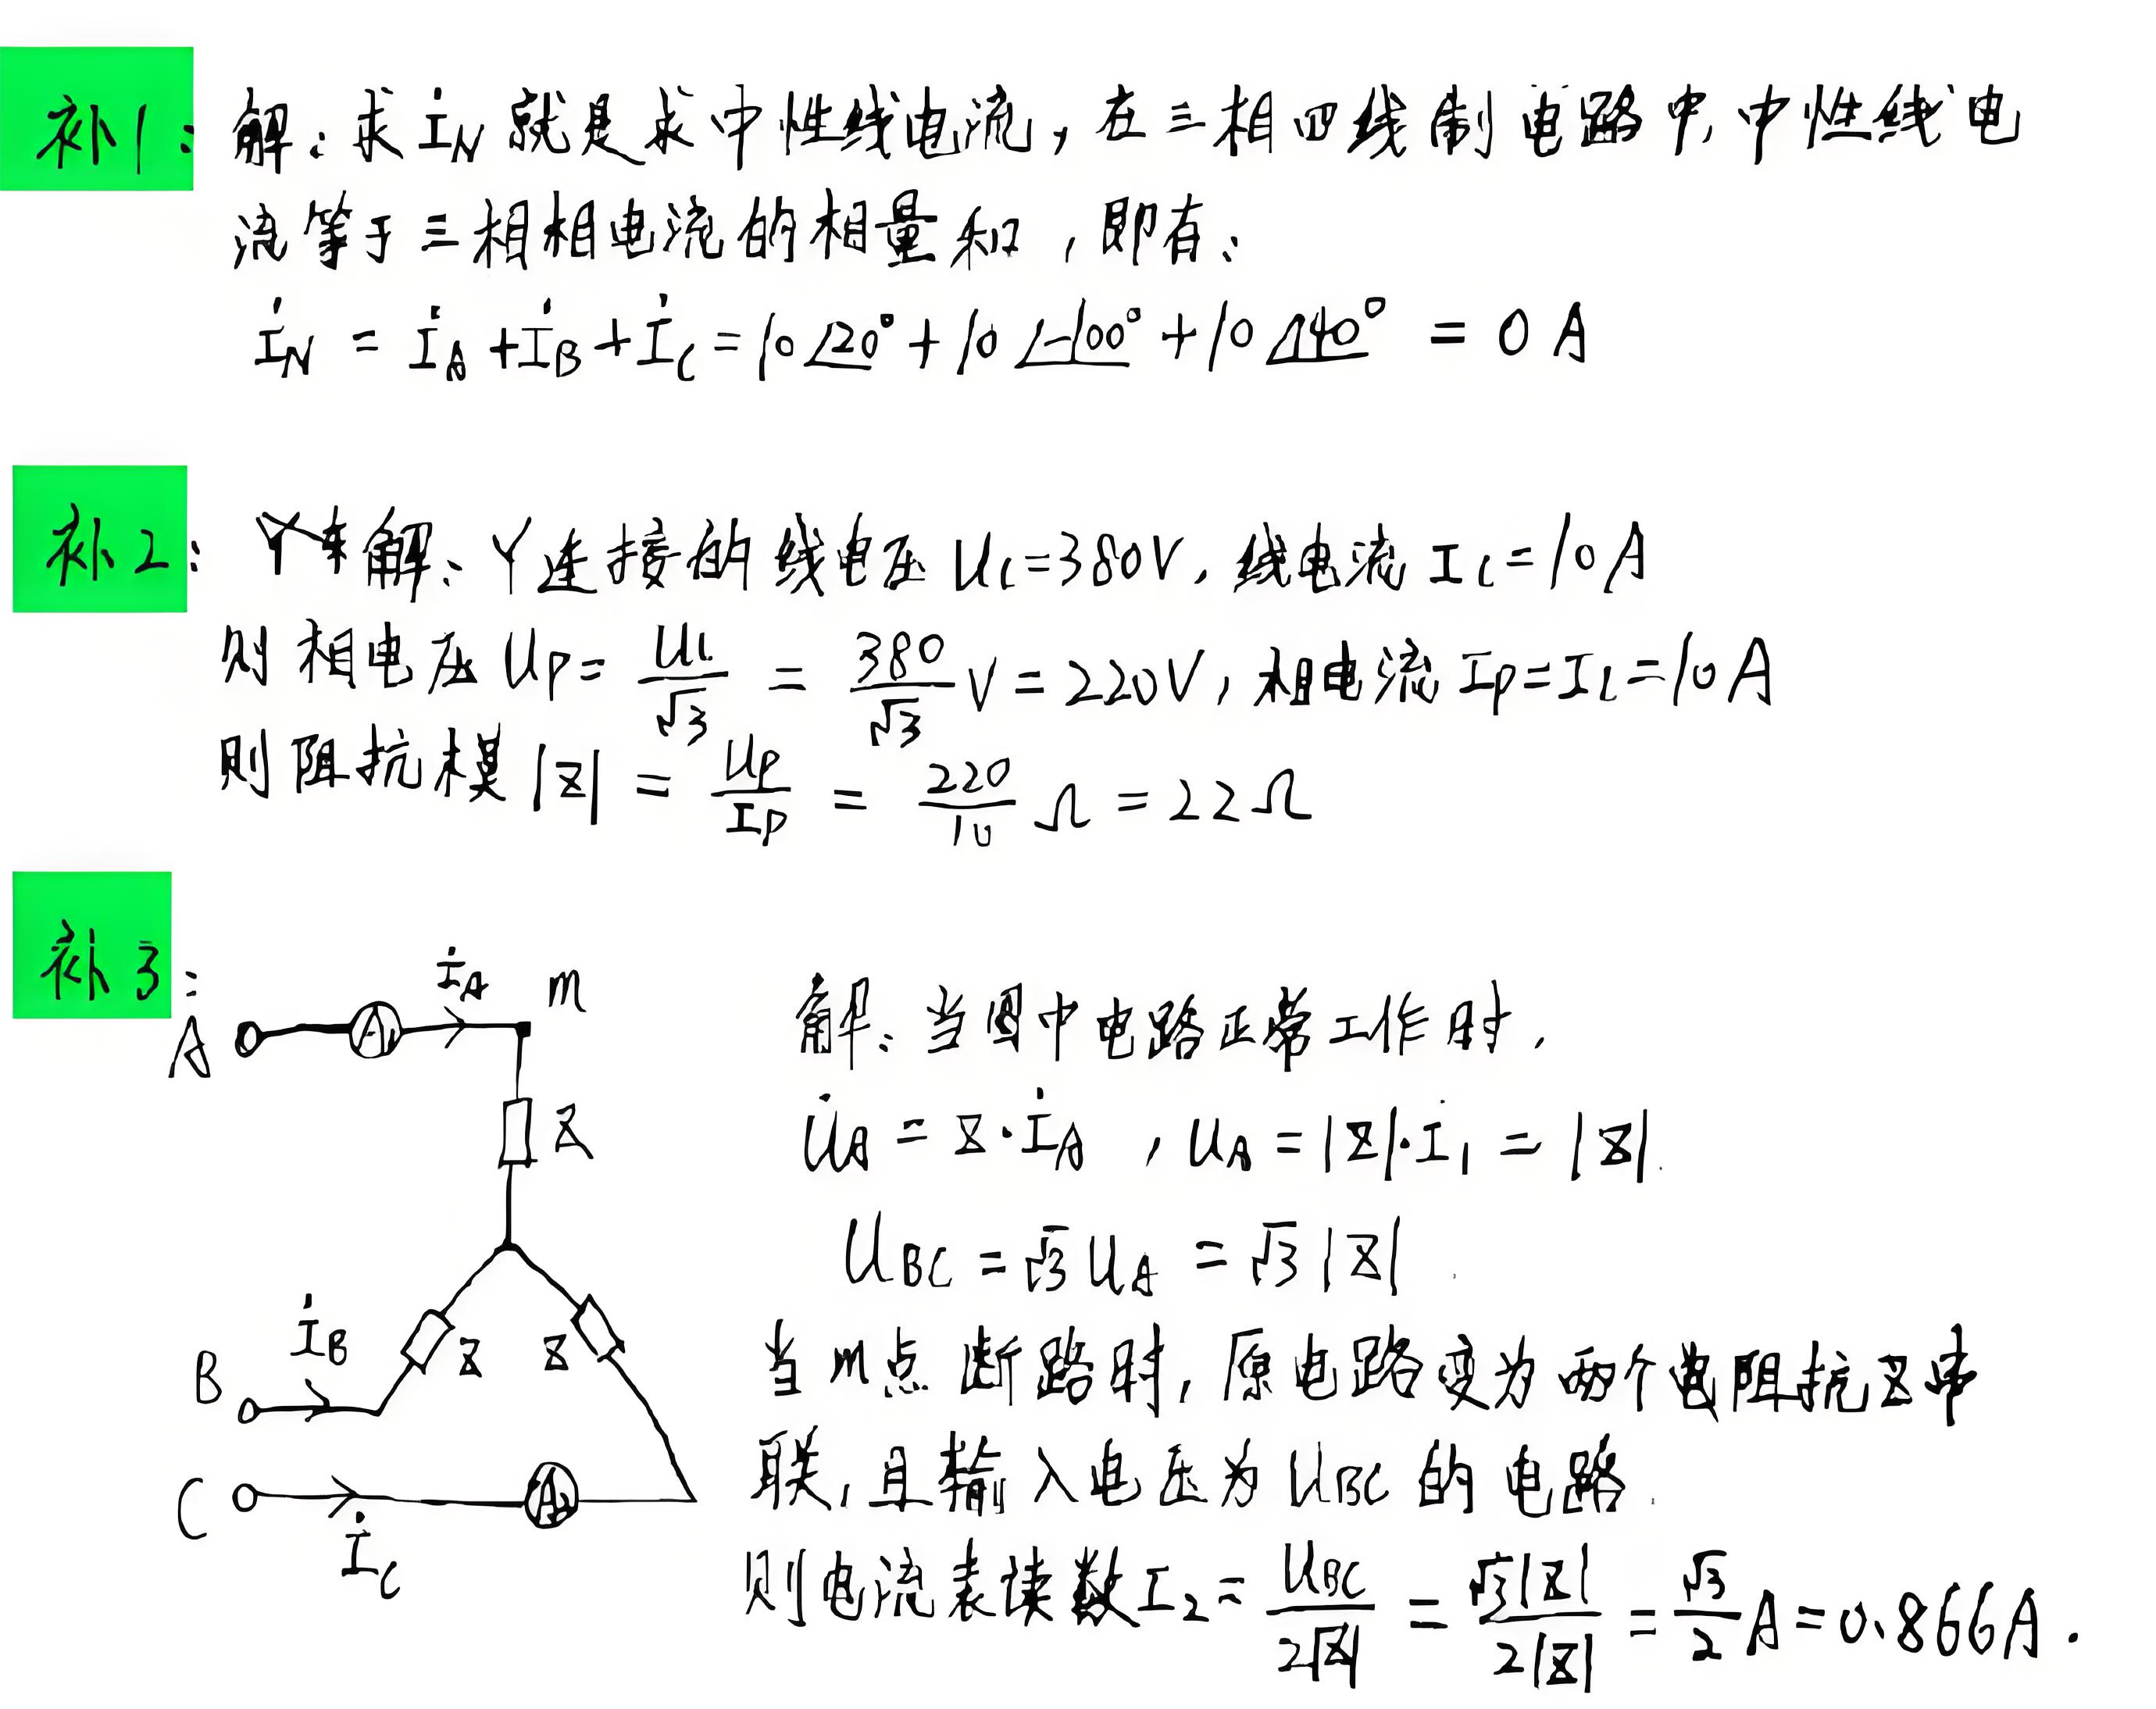 补1: 解:求İN就是求中性线电流,在三相四线制电路中,中性线电
流等于三相相电流的相量和,即有:
İN = İA + İB + İC = 10∠20° + 10∠-100° + 10∠140° = 0 A
补2: Y 解:Y连接的线电压 UL=380V,线电流 IL=10A
则相电压 UP = UL/√3 = 380/√3 V = 220V,相电流 IP=IL=10A
则阻抗模 |Z| = UP/IP = 220/10 Ω = 22Ω
补3:
İA m
A A1
Z
İB
B Z Z
C A2
İC
解:当图中电路正常工作时,
U̇A = Z·İA , UA = |Z|·I1 = |Z|.
UBC = √3 UA = √3 |Z|
当m点断路时,原电路变为两个阻抗Z串
联,且输入电压为UBC的电路.
则电流表读数I2 = UBC/2|Z| = √3|Z|/2|Z| = √3/2 A = 0.866A.